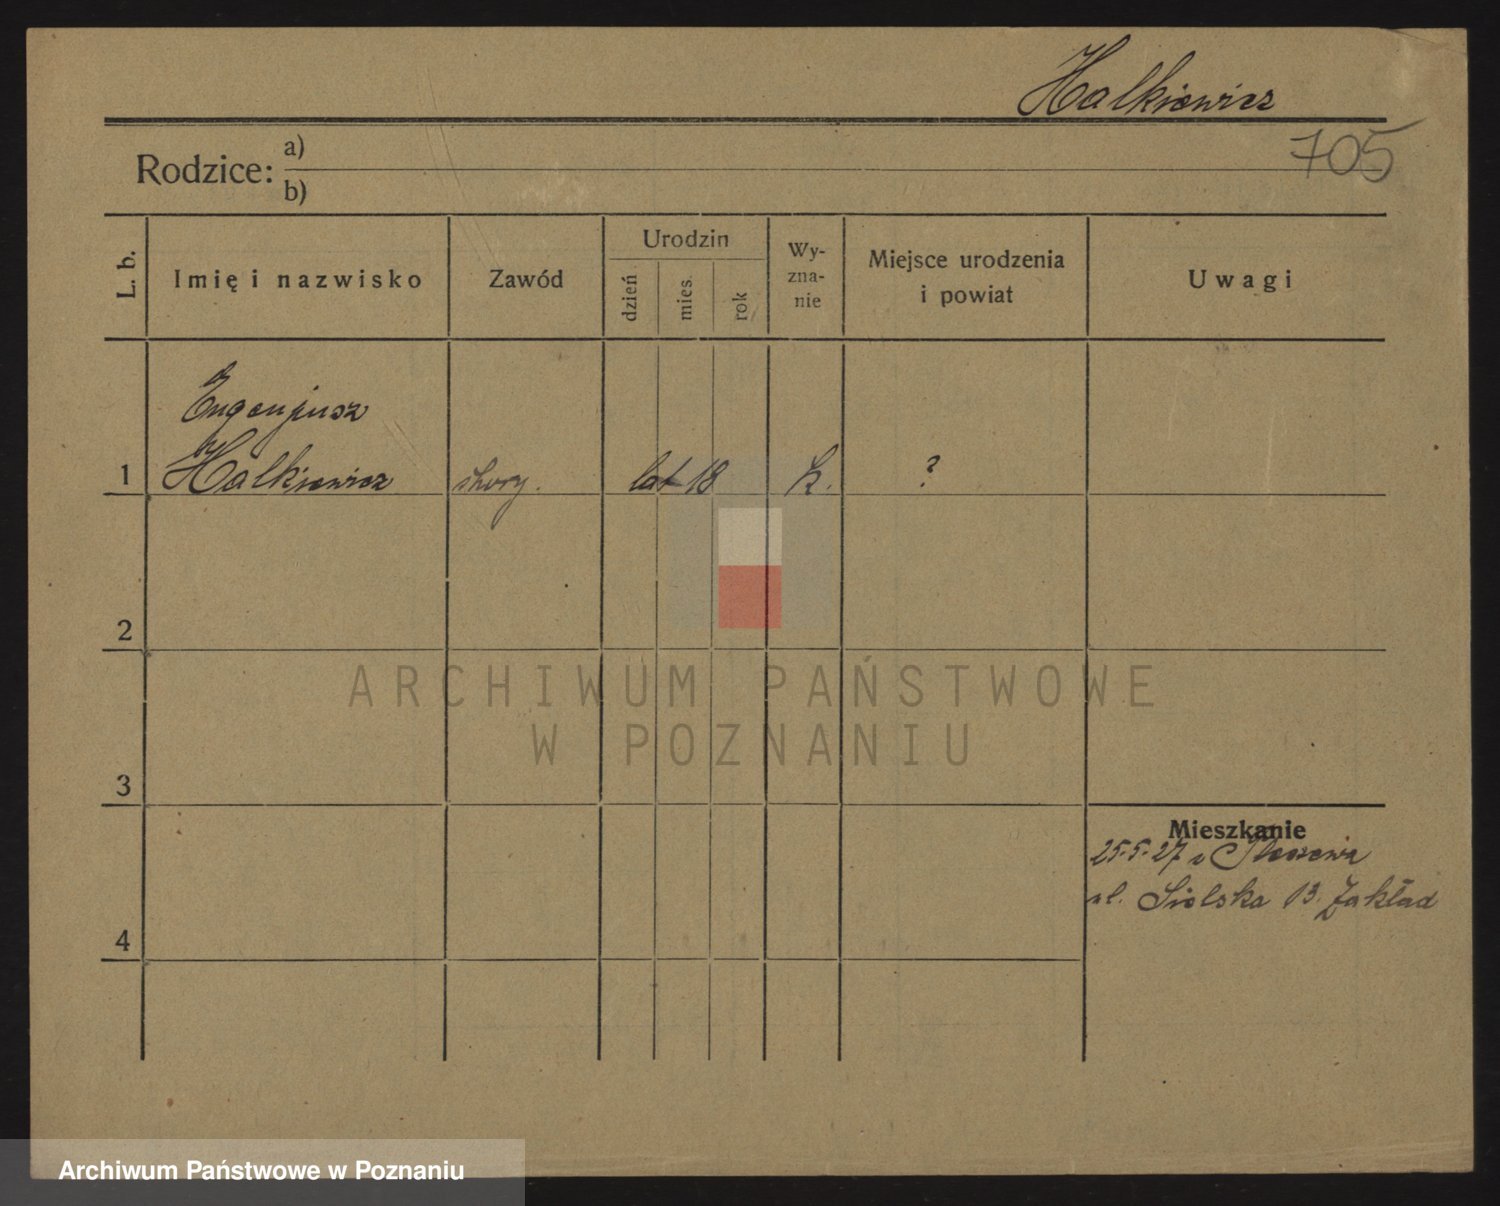 Halkiewicz
705
Rodzice: a)
b)
L. b.
Imię i nazwisko
Zawód
Urodzin
dzień
mies.
rok
Wy-
zna-
nie
Miejsce urodzenia
i powiat
Uwagi
Eugenjusz
1 Halkiewicz chory. lat 18 k. ?
2
3
4
Mieszkanie
25.5.27 z Pleszewa
ul. Sielska 13. Zakład
ARCHIWUM PAŃSTWOWE
W POZNANIU
Archiwum Państwowe w Poznaniu